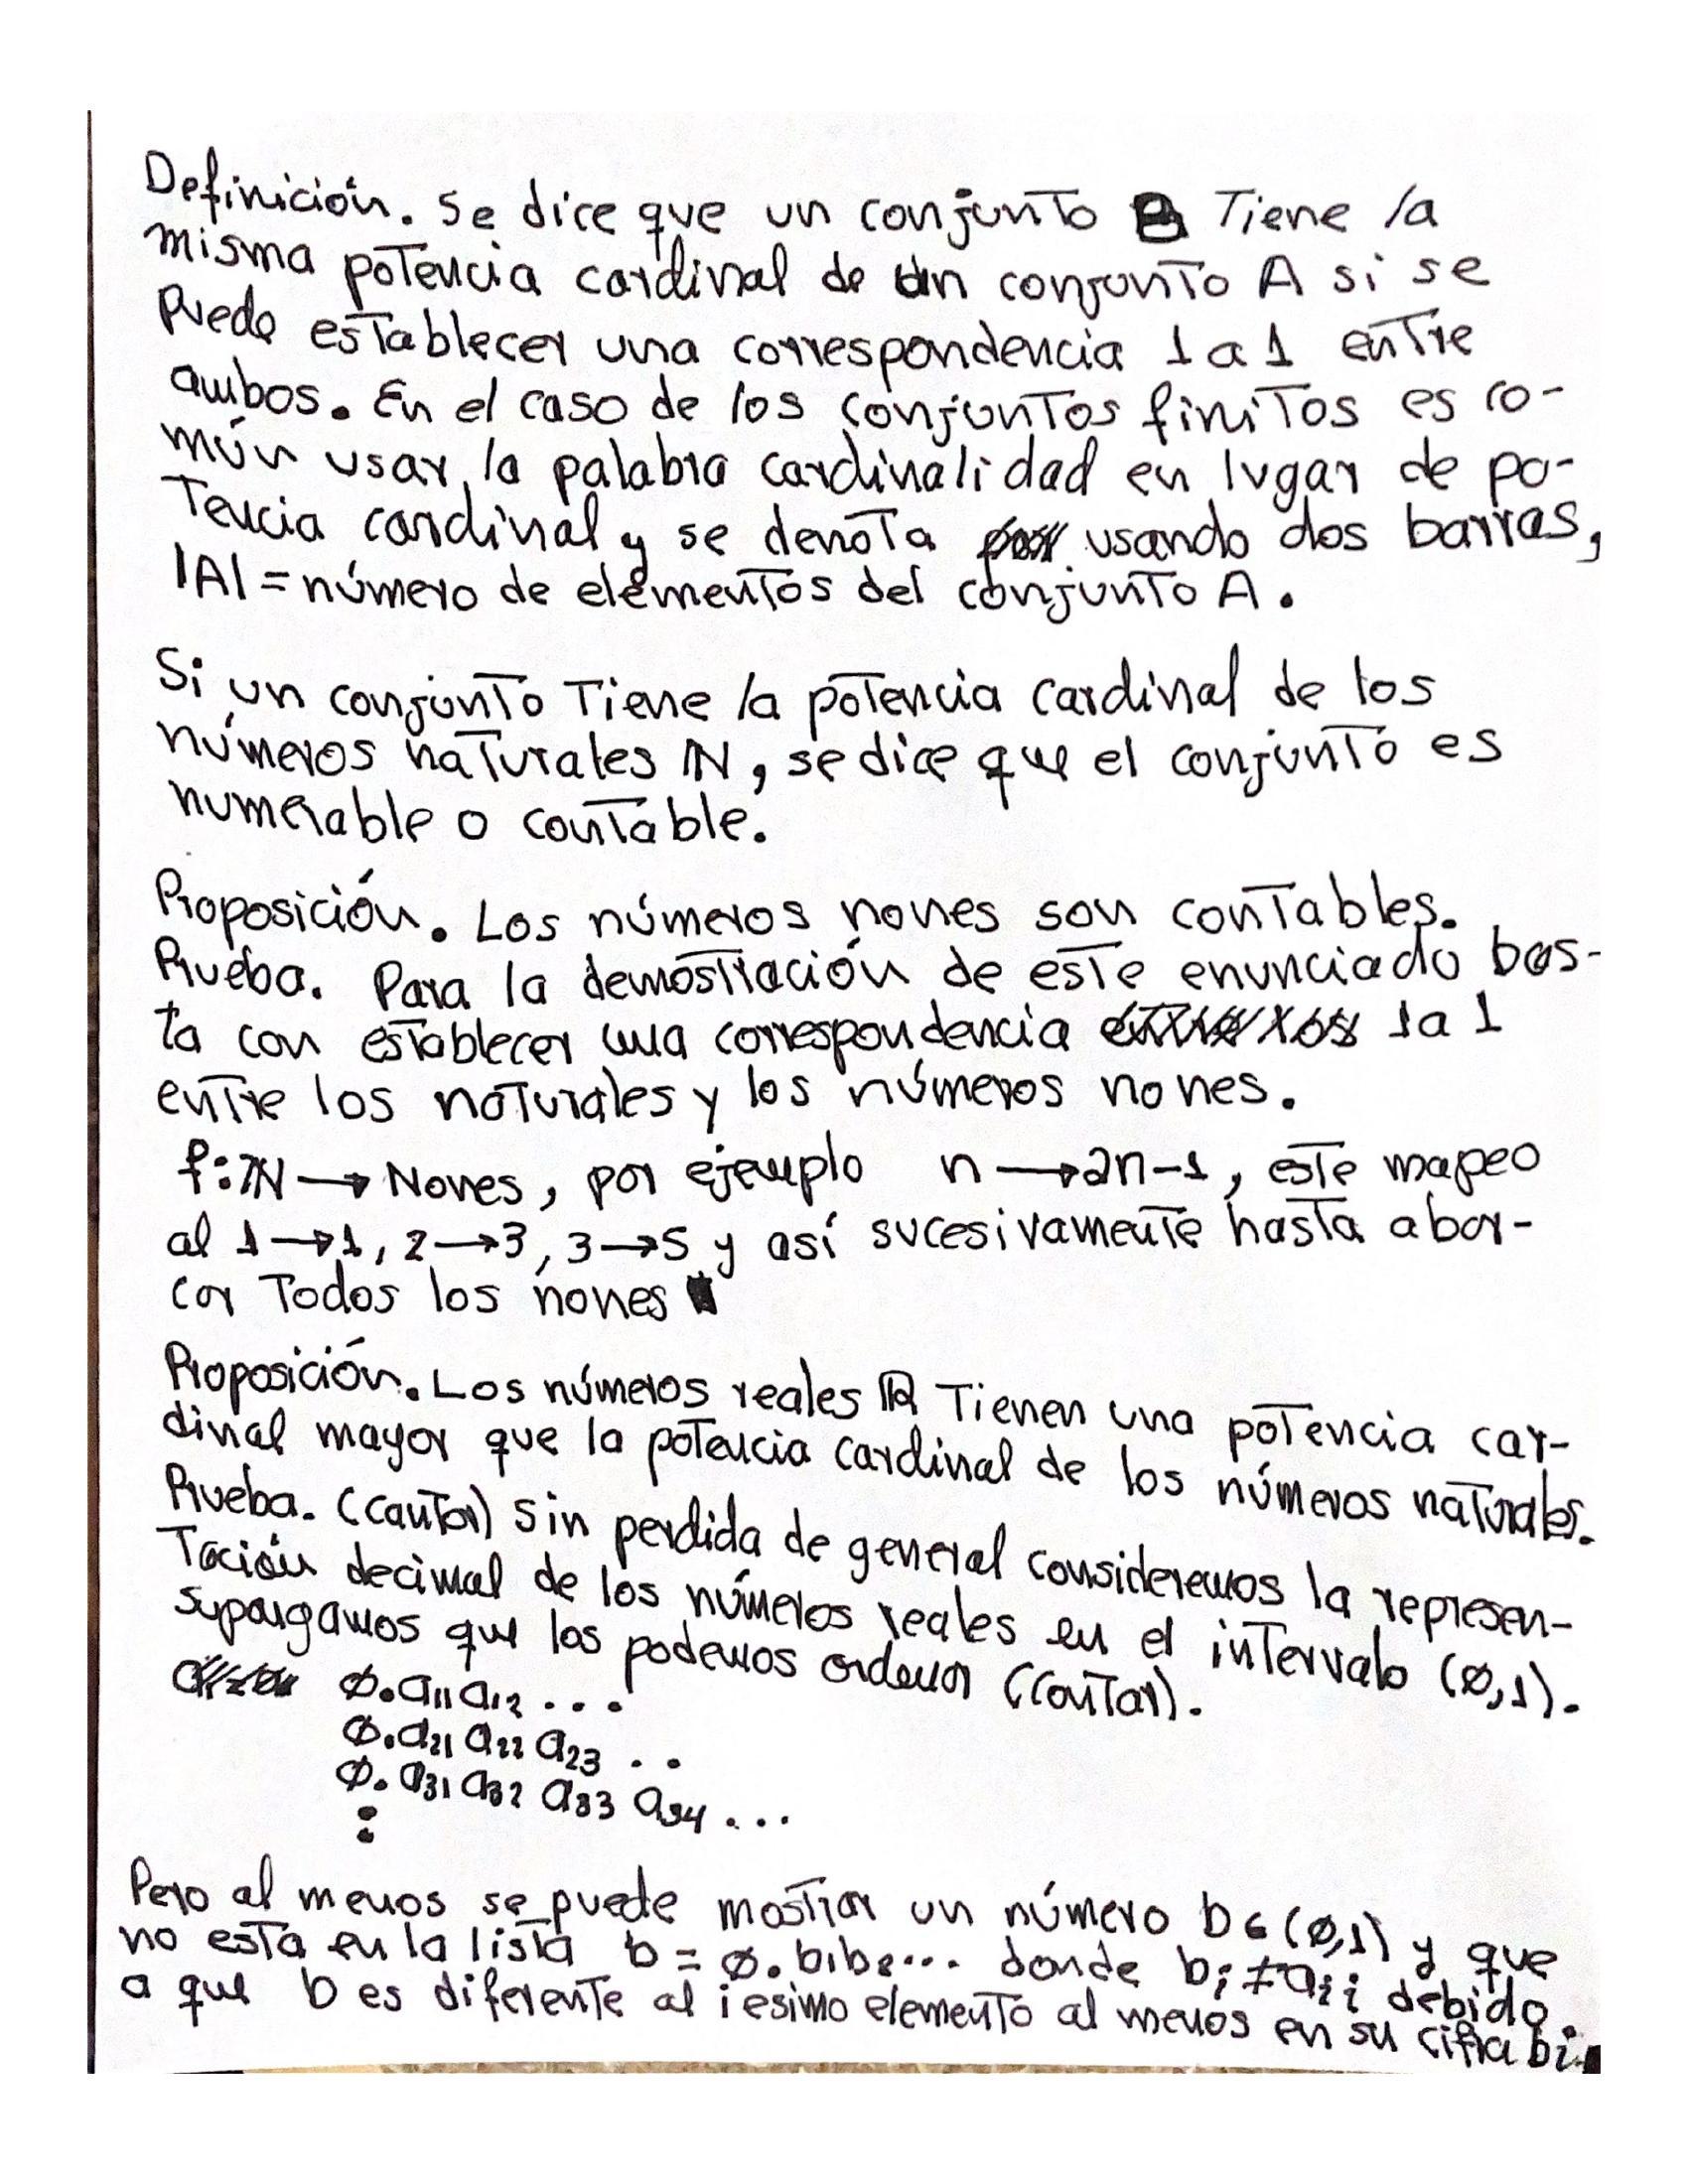 Definición. Se dice que un conjunto B Tiene la
misma potencia cardinal de un conjunto A si se
Puede establecer una correspondencia 1 a 1 entre
ambos. En el caso de los conjuntos finitos es co-
mún usar la palabra cardinalidad en lugar de po-
tencia cardinal y se denota usando dos barras,
|A| = número de elementos del conjunto A.
Si un conjunto Tiene la potencia cardinal de los
números naturales ℕ, se dice que el conjunto es
numerable o contable.
Proposición. Los números nones son contables.
Prueba. Para la demostración de este enunciado bas-
ta con establecer una correspondencia 1 a 1
entre los naturales y los números nones.
f: ℕ → Nones, por ejemplo n → 2n-1, este mapeo
al 1→1, 2→3, 3→5 y así sucesivamente hasta abar-
car Todos los nones ∎
Proposición. Los números reales ℝ Tienen una potencia car-
dinal mayor que la potencia cardinal de los números naturales.
Prueba. (Cantor) Sin perdida de general consideremos la represen-
Tación decimal de los números reales en el intervalo (0,1).
Supongamos que los podemos ordenar (contar).
0.a₁₁a₁₂...
0.a₂₁a₂₂a₂₃..
0.a₃₁a₃₂a₃₃a₃₄...
:
Pero al menos se puede mostrar un número b ∈ (0,1) y que
no esta en la lista b = 0.b₁b₂... donde bᵢ ≠ aᵢᵢ debido
a que b es diferente al iesimo elemento al menos en su cifra bᵢ.∎